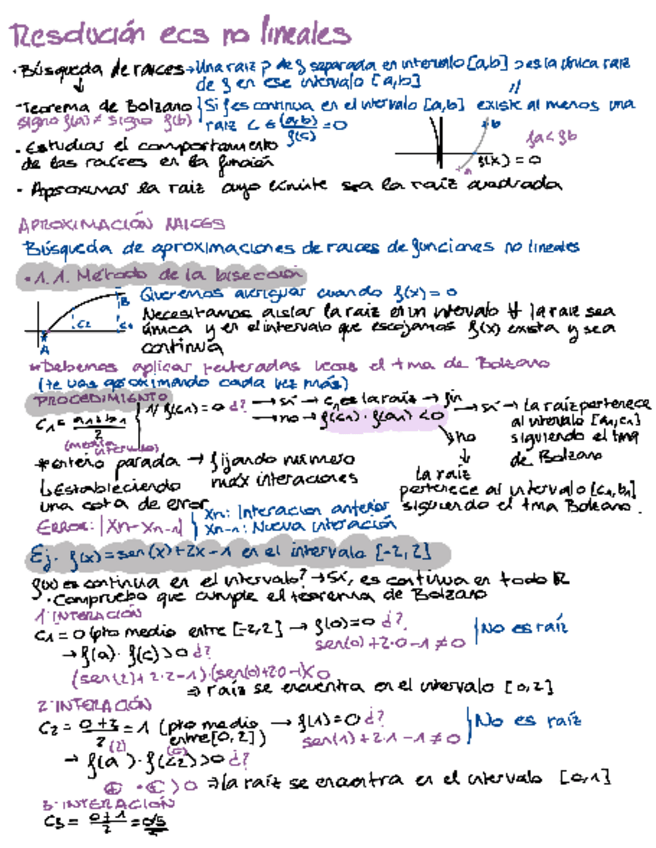 Resolución ecs no lineales
· Búsqueda de raíces → Una raíz p de f separada en intervalo [a,b] si es la única raíz
de f en ese intervalo [a,b]
- Teorema de Bolzano | Si f es continua en el intervalo [a,b] existe al menos una
signo f(a) ≠ signo f(b) raíz c ∈ (a,b) f(c) = 0
· Estudias el comportamiento
de las raíces en la función
fa < fb
f(x) = 0
· Aproximas la raíz cuyo límite sea la raíz cuadrada
APROXIMACIÓN RAICES
Búsqueda de aproximaciones de raíces de funciones no lineales
· 1.1. Método de la bisección
Queremos averiguar cuando f(x) = 0
Necesitamos aislar la raíz en un intervalo # la raíz sea
única y en el intervalo que escojamos f(x) exista y sea
continua
A B C2
* Debemos aplicar reiteradas veces el tma de Bolzano
(te vas aproximando cada vez más)
PROCEDIMIENTO
C1 = a1+b1/2 (media intervalo) // f(c1) = 0 ¿? → sí → c1 es la raíz → fin
→ no → f(c1) · f(a1) < 0 → sí → la raíz pertenece
al intervalo [a1,c1]
siguiendo el tma
de Bolzano
↓ no
la raíz
pertenece al intervalo [c1,b1]
siguiendo el tma Bolzano.
* criterio parada → fijando número
máx interaciones
↳ Estableciendo
una cota de error
ERROR: |Xn-Xn-1| Xn: Interacion anterior
Xn-1: Nueva interación
Ej. f(x) = sen(x)+2x-1 en el intervalo [-2,2]
f(x) es continua en el intervalo? → Sí, es continua en todo R
· Compruebo que cumple el teorema de Bolzano
1ª INTERACIÓN
C1 = 0 (pto medio entre [-2,2] → f(0) = 0 ¿? | No es raíz
sen(0)+2·0-1 ≠ 0
→ f(a) · f(c) > 0 ¿?
(sen(2)+2·2-1)·(sen(0)+20-1)< 0
⇒ raíz se encuentra en el intervalo [0,2]
2ª INTERACIÓN
C2 = 0+2/2 = 1 (pto medio entre [0,2]) → f(1) = 0 ¿? | No es raíz
sen(1)+2·1-1 ≠ 0
(2) (c)
→ f(a) · f(c2) > 0 ¿?
⊕ · ⊕ > 0 ⇒ la raíz se encontra en el intervalo [0,1]
3ª INTERACIÓN
C3 = 0+1/2 = 0'5